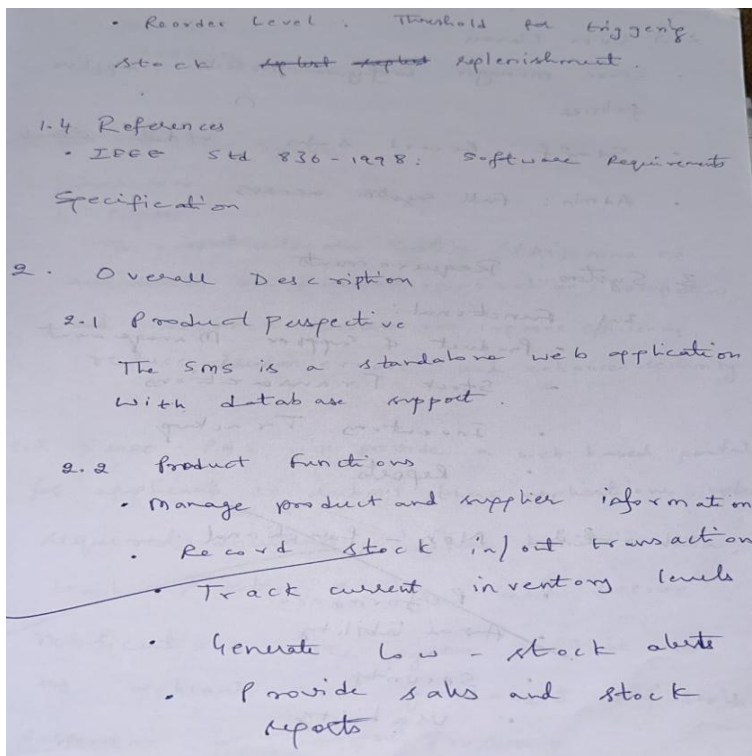 • Reorder Level : Threshold for triggering
stock replenishment.
1.4 References
• IEEE Std 830-1998: Software Requirements
Specification
2. Overall Description
2.1 Product Perspective
The SMS is a standalone web application
with database support.
2.2 Product Functions
• Manage product and supplier information
• Record stock in/out transaction
• Track current inventory levels
• Generate low-stock alerts
• Provide sales and stock
reports